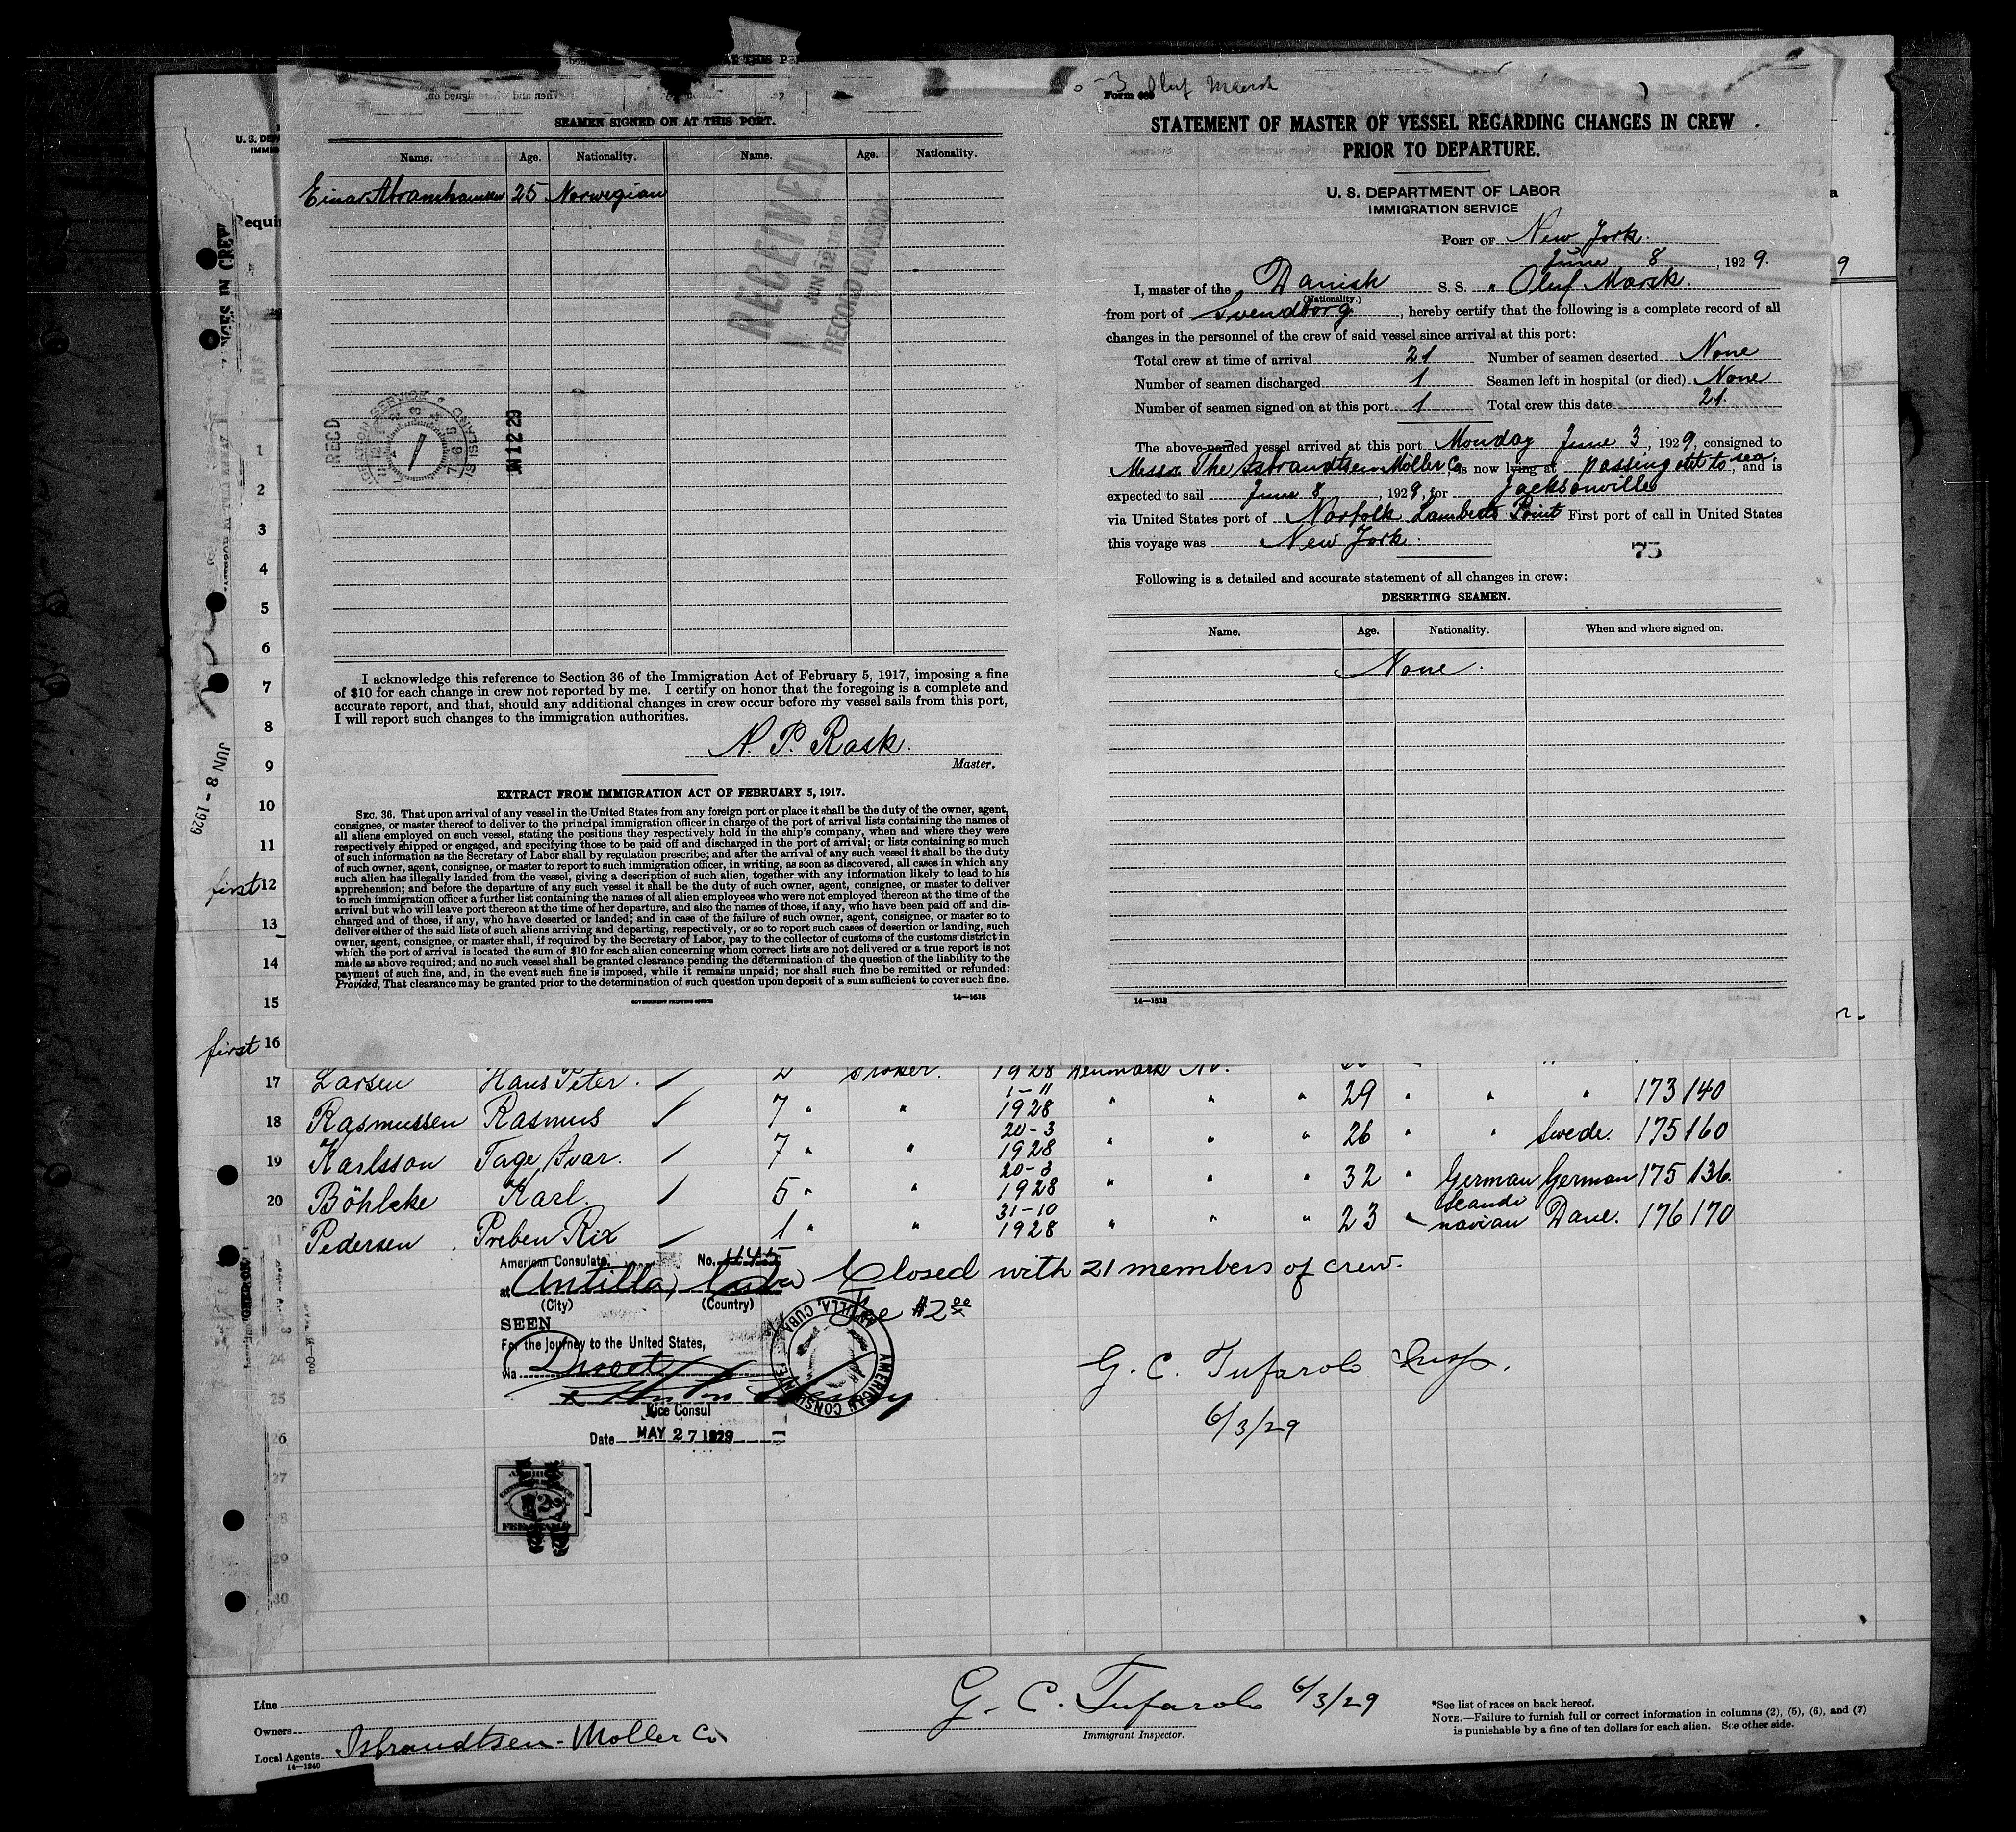 SEAMEN SIGNED ON AT THIS PORT.
Name. Age. Nationality. Name. Age. Nationality.
Einar Abramhamsen 25 Norwegian
RECEIVED
JUN 12 1929
RECORD DIVISION
REC'D
JUN 12 29
I acknowledge this reference to Section 36 of the Immigration Act of February 5, 1917, imposing a fine
of $10 for each change in crew not reported by me. I certify on honor that the foregoing is a complete and
accurate report, and that, should any additional changes in crew occur before my vessel sails from this port,
I will report such changes to the immigration authorities.
N. P. Rask.
Master.
EXTRACT FROM IMMIGRATION ACT OF FEBRUARY 5, 1917.
SEC. 36. That upon arrival of any vessel in the United States from any foreign port or place it shall be the duty of the owner, agent,
consignee, or master thereof to deliver to the principal immigration officer in charge of the port of arrival lists containing the names of
all aliens employed on such vessel, stating the positions they respectively hold in the ship's company, when and where they were
respectively shipped or engaged, and specifying those to be paid off and discharged in the port of arrival; or lists containing so much
of such information as the Secretary of Labor shall by regulation prescribe; and after the arrival of any such vessel it shall be the duty
of such owner, agent, consignee, or master to report to such immigration officer, in writing, as soon as discovered, all cases in which any
such alien has illegally landed from the vessel, giving a description of such alien, together with any information likely to lead to his
apprehension; and before the departure of any such vessel it shall be the duty of such owner, agent, consignee, or master to deliver
to such immigration officer a further list containing the names of all alien employees who were not employed thereon at the time of the
arrival but who will leave port thereon at the time of her departure, and also the names of those, if any, who have been paid off and dis-
charged and of those, if any, who have deserted or landed; and in case of the failure of such owner, agent, consignee, or master so to
deliver either of the said lists of such aliens arriving and departing, respectively, or so to report such cases of desertion or landing, such
owner, agent, consignee, or master shall, if required by the Secretary of Labor, pay to the collector of customs of the customs district in
which the port of arrival is located the sum of $10 for each alien concerning whom correct lists are not delivered or a true report is not
made as above required; and no such vessel shall be granted clearance pending the determination of the question of the liability to the
payment of such fine, and, in the event such fine is imposed, while it remains unpaid; nor shall such fine be remitted or refunded:
Provided, That clearance may be granted prior to the determination of such question upon deposit of a sum sufficient to cover such fine.
GOVERNMENT PRINTING OFFICE 14—1613
Oluf Maersk
Form 689
STATEMENT OF MASTER OF VESSEL REGARDING CHANGES IN CREW
PRIOR TO DEPARTURE.
U. S. DEPARTMENT OF LABOR
IMMIGRATION SERVICE
PORT OF New York.
June 8, 1929.
I, master of the Danish S. S. "Oluf Marsk.
(Nationality.)
from port of Svendborg, hereby certify that the following is a complete record of all
changes in the personnel of the crew of said vessel since arrival at this port:
Total crew at time of arrival 21 Number of seamen deserted None
Number of seamen discharged 1 Seamen left in hospital (or died) None
Number of seamen signed on at this port 1 Total crew this date 21.
The above-named vessel arrived at this port Monday June 3, 1929, consigned to
Messrs. The Isbrandtsen Möller Co, is now lying at passing out to sea, and is
expected to sail June 8, 1929, for Jacksonville
via United States port of Norfolk Lamberts Point First port of call in United States
this voyage was New York.
75
Following is a detailed and accurate statement of all changes in crew:
DESERTING SEAMEN.
Name. Age. Nationality. When and where signed on.
None.
14—1613
JUN 8 - 1929
1
2
3
4
5
6
7
8
9
10
11
first 12
13
14
15
first 16
17 Larsen Hans Peter. 2 stoker. 1928 Denmark
1-11
18 Rasmussen Rasmus 7 " " 1928 " " " 29 " " " 173 140
20-3
19 Karlsson Tage Ivar. 7 " " 1928 " " " 26 " " Swede. 175 160
20-3
20 Böhlcke Karl. 5 " " 1928 " " " 32 " German German 175 136.
31-10
21 Pedersen Preben Rix 1 " " 1928 " " " 23 " Scandinavian Dane. 176 170
American Consulate, No. 445
at Antilla, Cuba Closed with 21 members of crew.
(City) (Country) Fee $2.00
SEEN
For the journey to the United States,
via Direct
Vice Consul
Date MAY 27 1929
AMERICAN CONSULATE ANTILLA, CUBA
G. C. Tufarolo Insp.
6/3/29
24
25
26
27
28
29
30
Line
Owners
Local Agents Isbrandtsen-Moller Co
14—1240
G. C. Tufarolo 6/3/29
Immigrant Inspector.
*See list of races on back hereof.
NOTE.—Failure to furnish full or correct information in columns (2), (5), (6), and (7)
is punishable by a fine of ten dollars for each alien. See other side.